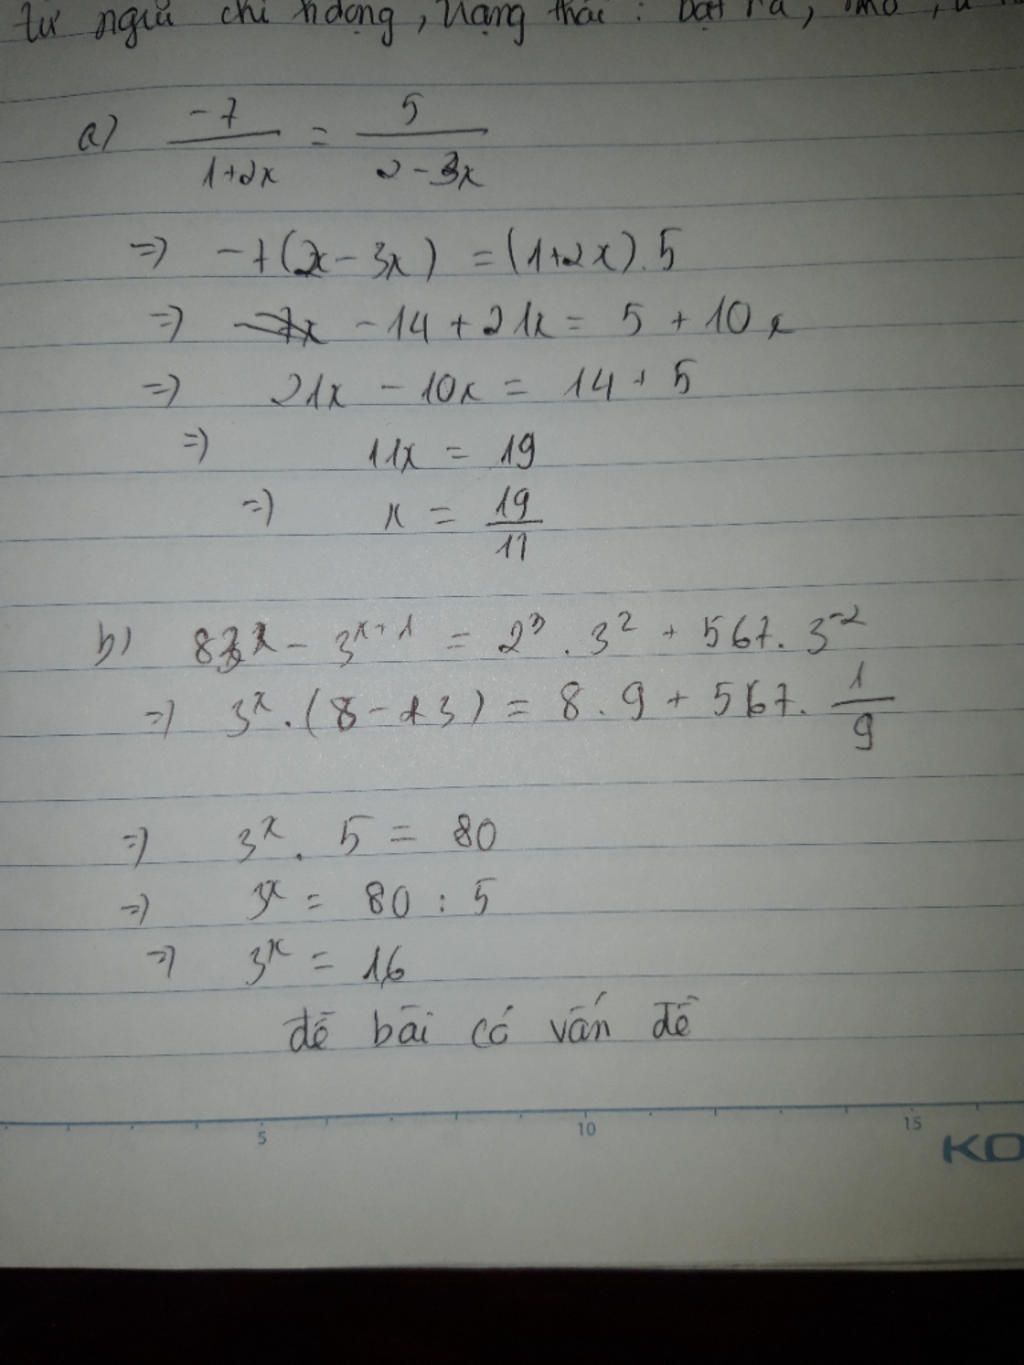 từ ngữ chỉ hđộng, trạng thái : bật ra,
a) -7/1+2x = 5/2-3x
=> -7(2x - 3x) = (1+2x).5
=> -7x - 14 + 21x = 5 + 10x
=> 21x - 10x = 14 + 5
=> 11x = 19
=> x = 19/11
b) 8 3^x - 3^x+1 = 2^3 . 3^2 + 567. 3^-2
=> 3^x . (8 - 3) = 8 . 9 + 567. 1/9
=> 3^x . 5 = 80
=> 3^x = 80 : 5
=> 3^x = 16
đề bài có vấn đề
5 10 15
KO